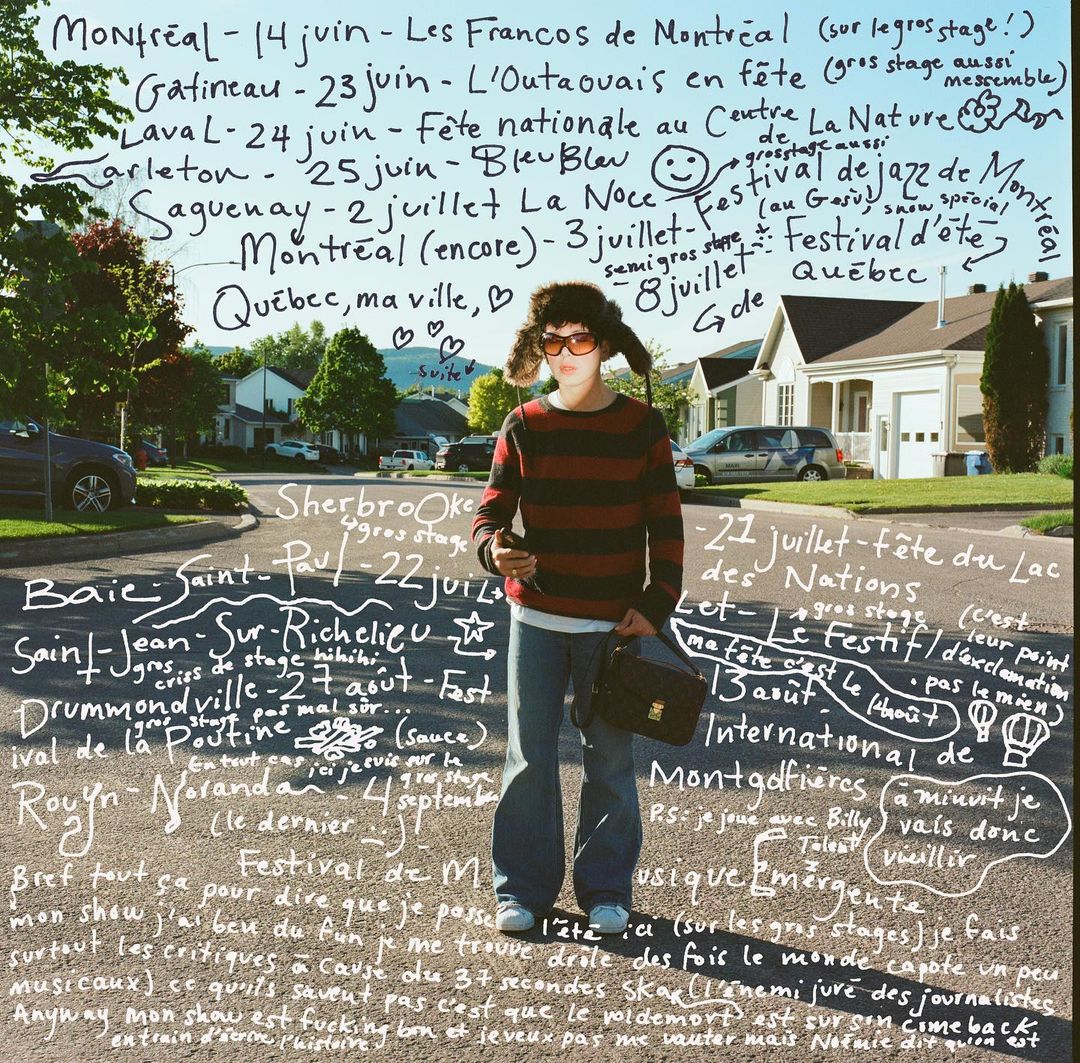 Montréal - 14 juin - Les Francos de Montréal (sur le gros stage!)
Gatineau - 23 juin - L'Outaouais en fête (gros stage aussi
messemble)
Laval - 24 juin - Fête nationale au Centre
de La Nature
Carleton - 25 juin - BleuBleu
gros stage aussi
Saguenay - 2 juillet La Noce
Montréal (encore) - 3 juillet - Festival de jazz de Montréal
(au Gesù), show spécial
semi gros stage
Québec, ma ville, - 8 juillet - Festival d'été
de
Québec
suite
Sherbrooke - 21 juillet - fête du Lac
gros stage
des Nations
Baie-Saint-Paul - 22 juillet - Le Festif!
gros stage
(c'est
leur point
d'exclamation
pas le mien)
Saint-Jean-Sur-Richelieu
13 août
ma fête c'est le 14 août
gros
criss de stage hihihi
International de
Montgolfières
à minuit je
vais donc
vieillir
P.S: je joue avec Billy
Talent
Drummondville - 27 août - Fest
ival de la Poutine (sauce)
gros stage pas mal sûr...
Rouyn-Noranda - 4 septembre
en tout cas ici je suis sur le
gros stage
(le dernier :j)
Festival de Musique Émergente
Bref tout ça pour dire que je passe l'été ici (sur les gros stages) je fais
mon show j'ai ben du fun je me trouve drôle des fois le monde capote un peu
surtout les critiques à cause du 37 secondes ska (l'énemi juré des journalistes
musicaux) ce qu'ils savent pas c'est que le voldemort est sur son comeback.
Anyway mon show est fucking bon et je veux pas me vauter mais Noémie dit qu'on est
entrain d'écrire l'histoire.
MAXI